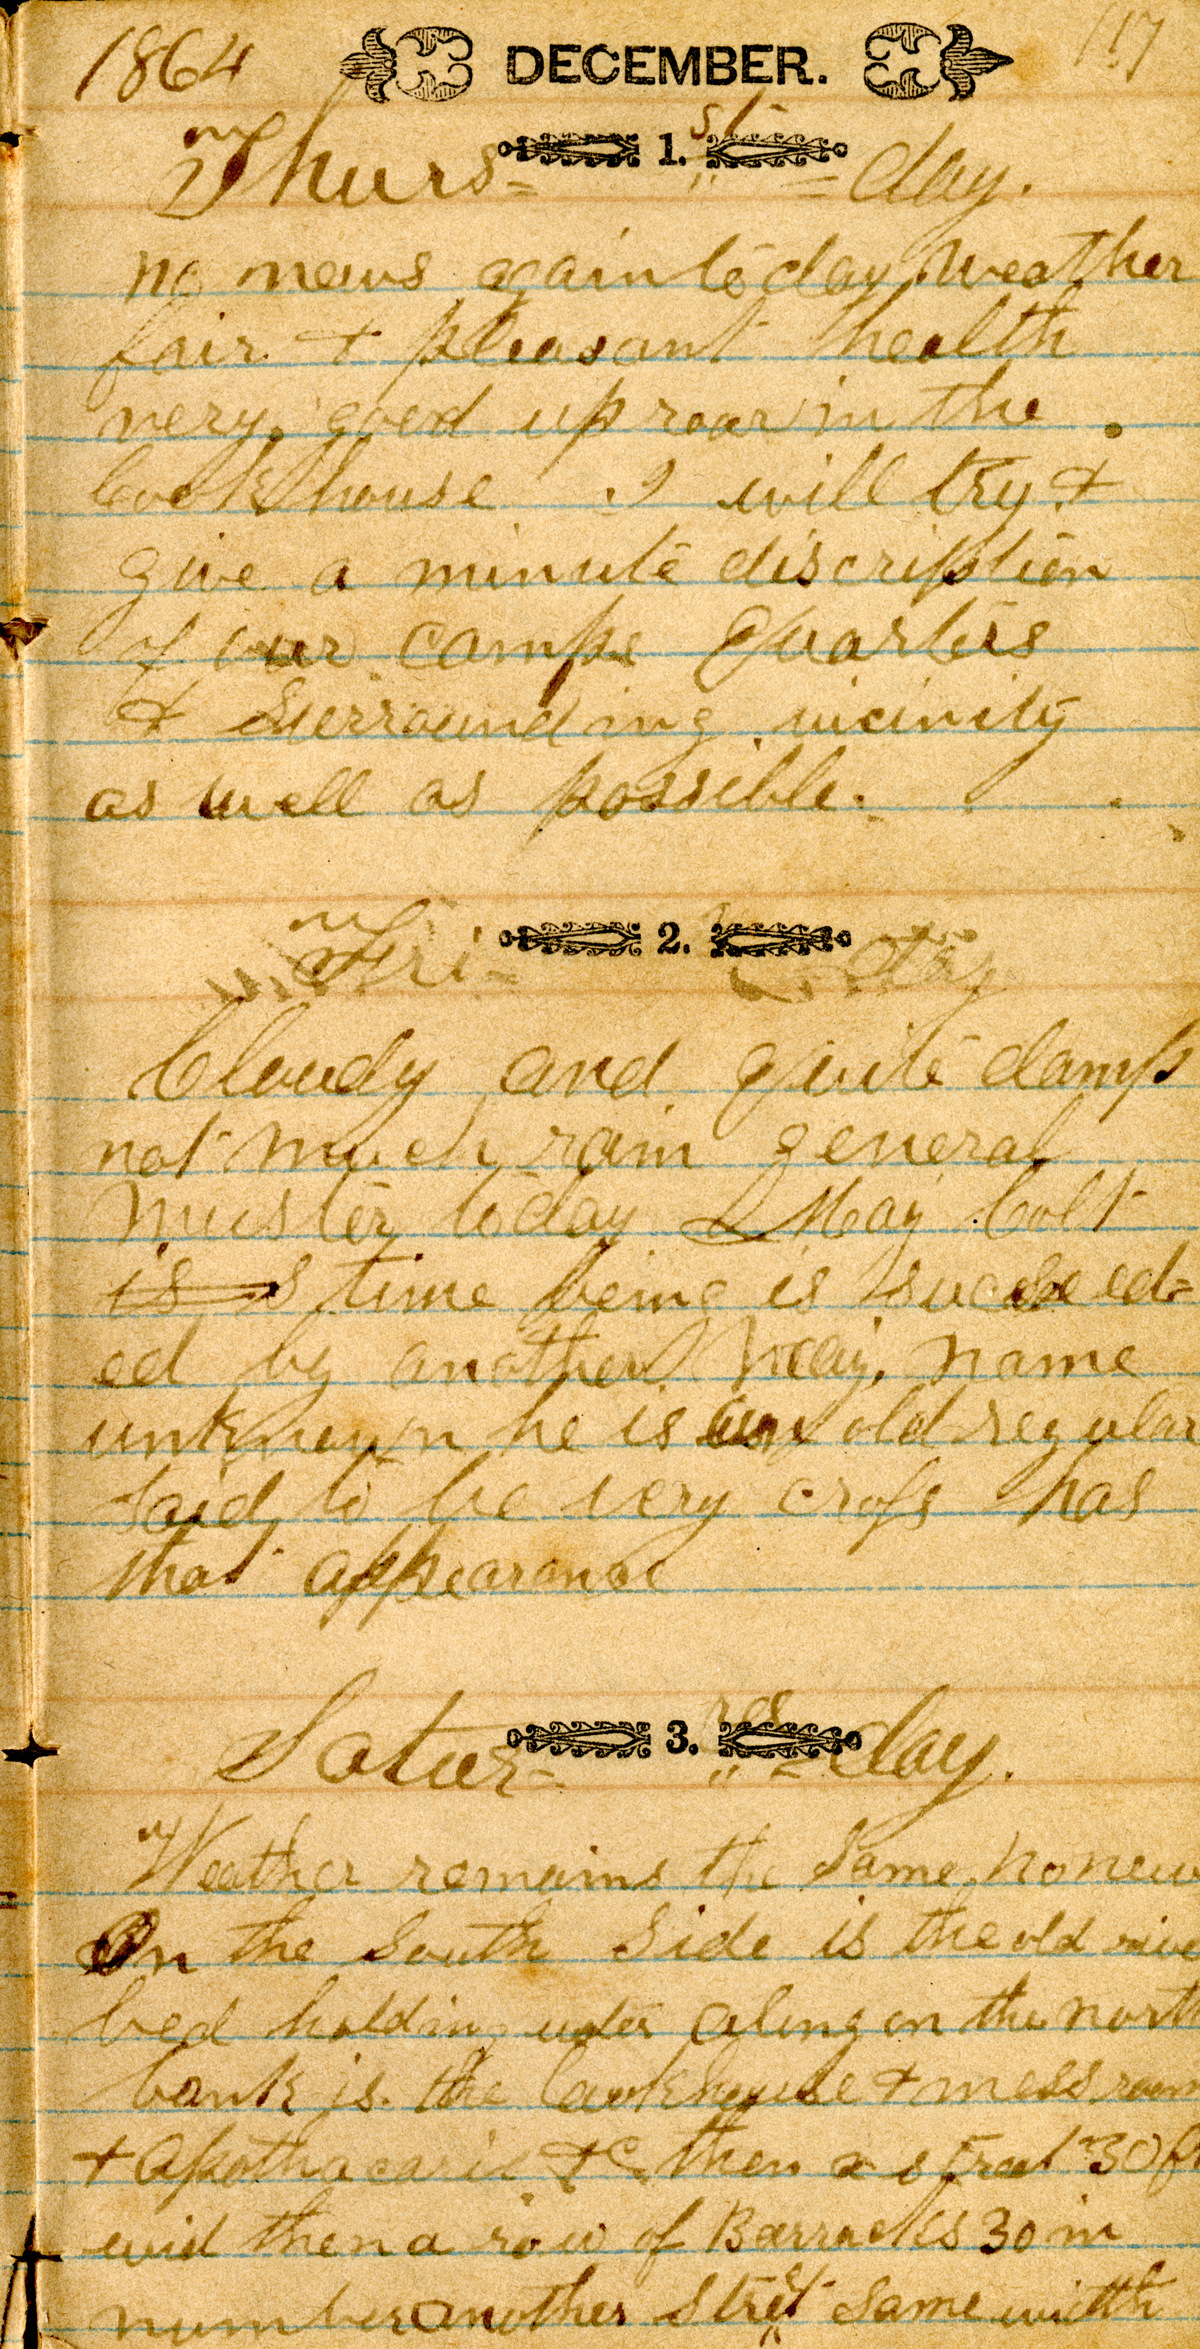 1864 DECEMBER. 117
Thurs- 1.st = day.
no news again to day weather
fair & pleasant health
very good up roar in the
Cook house I will try &
give a minute discription
of our camps Quarters
& Surrounding vicinity
as well as possible.
Fri- 2. day
Cloudy and quite damp
not much rain general
muster to day Maj Colt
is s time being is succeed=
ed by another Maj. name
unknown he is an old regular
said to be very cross has
that appearance
Satur- 3.rd = day.
Weather remains the same no new
On the South Side is the old rive
bed holding water along on the north
bank is the Cook house & mess room
& Apothacarie &c then a street 30 ft
wid then a row of Barracks 30 in
number another Street same width